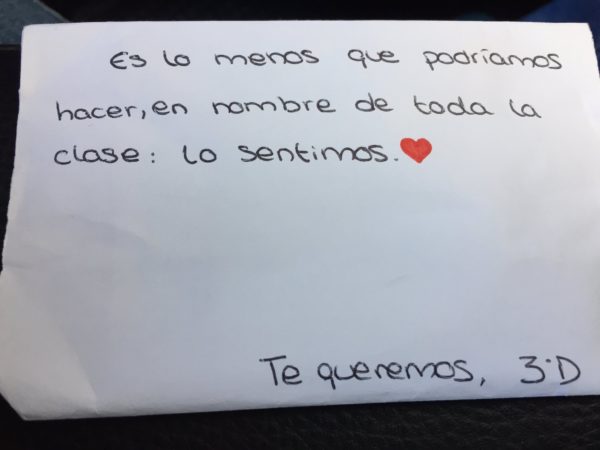 Es lo menos que podríamos
hacer, en nombre de toda la
clase: lo sentimos.❤
Te queremos, 3ºD